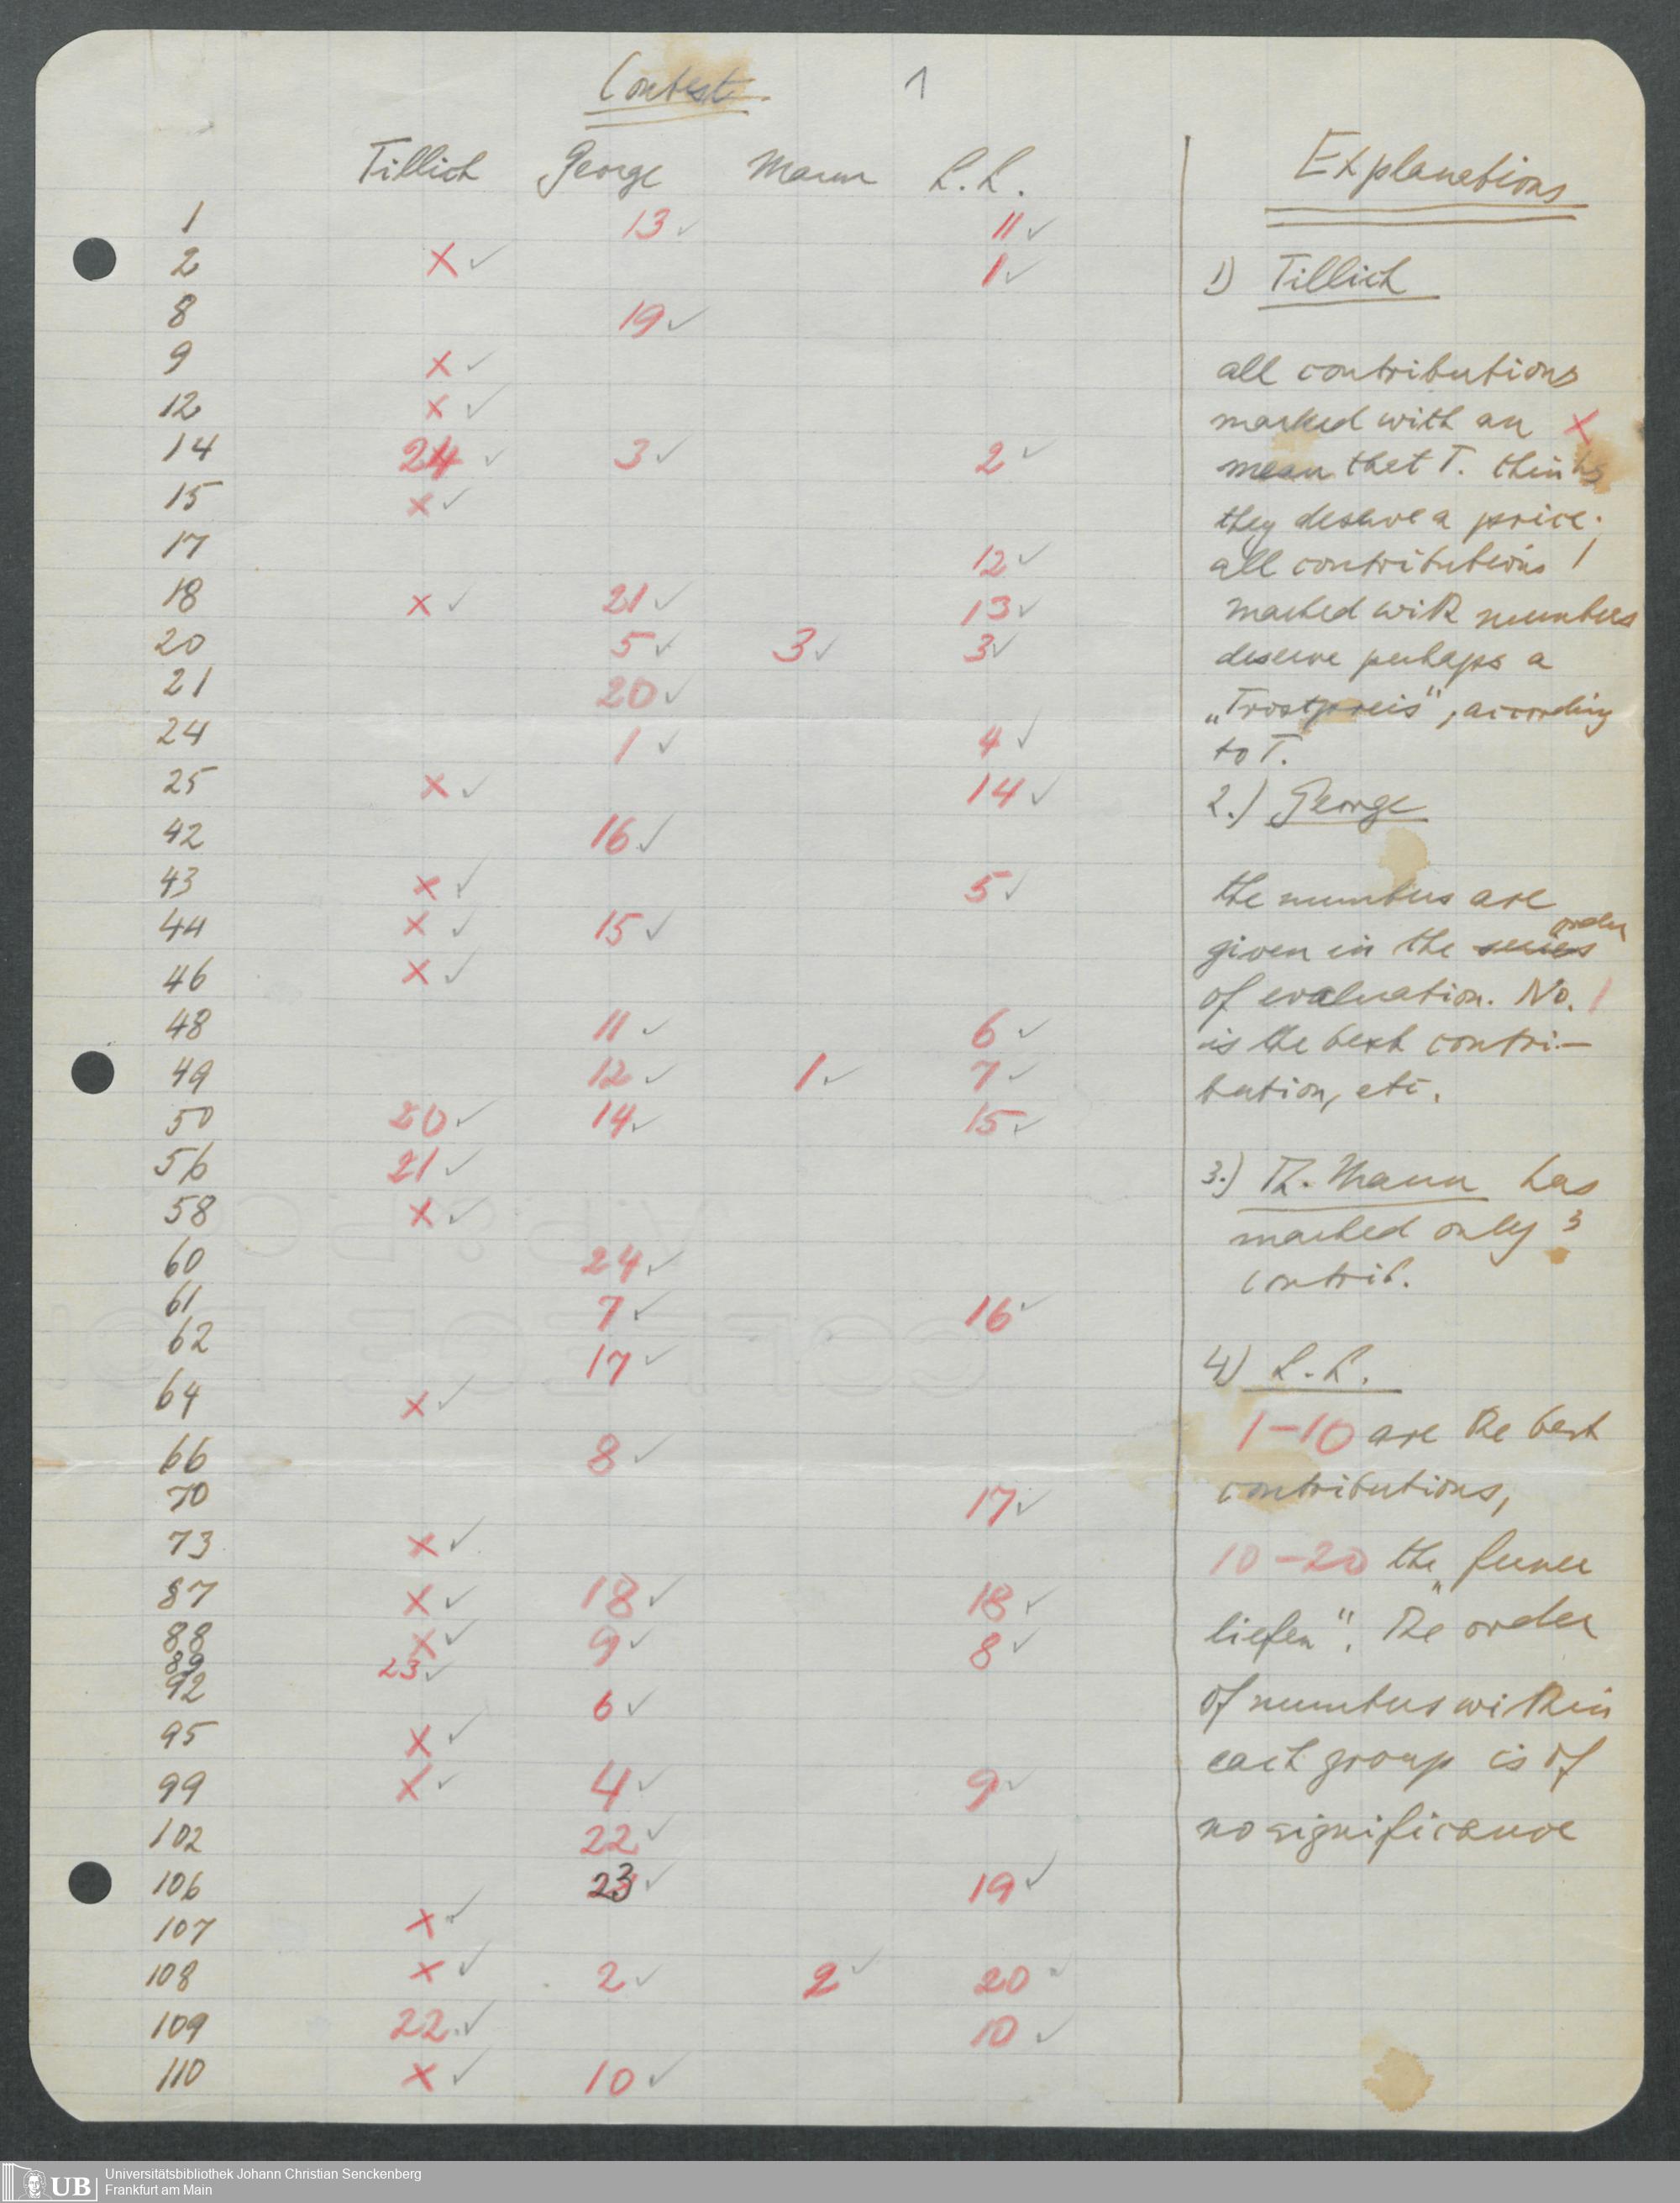 Contest 1
Tillich George Mann L.L.
1 13 ✓ 11 ✓
2 x ✓ 1 ✓
8 19 ✓
9 x ✓
12 x ✓
14 24 ✓ 3 ✓ 2 ✓
15 x ✓
17 12 ✓
18 x ✓ 21 ✓ 13 ✓
20 5 ✓ 3 ✓ 3 ✓
21 20 ✓
24 1 ✓ 4 ✓
25 x ✓ 14 ✓
42 16 ✓
43 x ✓ 5 ✓
44 x ✓ 15 ✓
46 x ✓
48 11 ✓ 6 ✓
49 12 ✓ 1 ✓ 7 ✓
50 20 ✓ 14 ✓ 15 ✓
56 21 ✓
58 x ✓
60 24 ✓
61 7 ✓ 16 ✓
62 17 ✓
64 x ✓
66 8 ✓
70 17 ✓
73 x ✓
87 x ✓ 18 ✓ 18 ✓
88 x ✓ 9 ✓ 8 ✓
89 23 ✓
92 6 ✓
95 x ✓
99 x ✓ 4 ✓ 9 ✓
102 22 ✓
106 23 ✓ 19 ✓
107 x ✓
108 x ✓ 2 ✓ 2 ✓ 20 ✓
109 22 ✓ 10 ✓
110 x ✓ 10 ✓
Explanations
1) Tillich
all contributions
marked with an x
mean that T. thinks
they deserve a price;
all contributions
marked with numbers
deserve perhaps a
„Trostpreis", according
to T.
2.) George
the numbers are
given in the series order
of evaluation. No. 1
is the best contri-
bution, etc.
3.) Th. Mann has
marked only 3
contrib.
4) L.L.
1-10 are the best
contributions,
10-20 the „ferner
liefen". The order
of numbers within
each group is of
no significance
UB Universitätsbibliothek Johann Christian Senckenberg
Frankfurt am Main